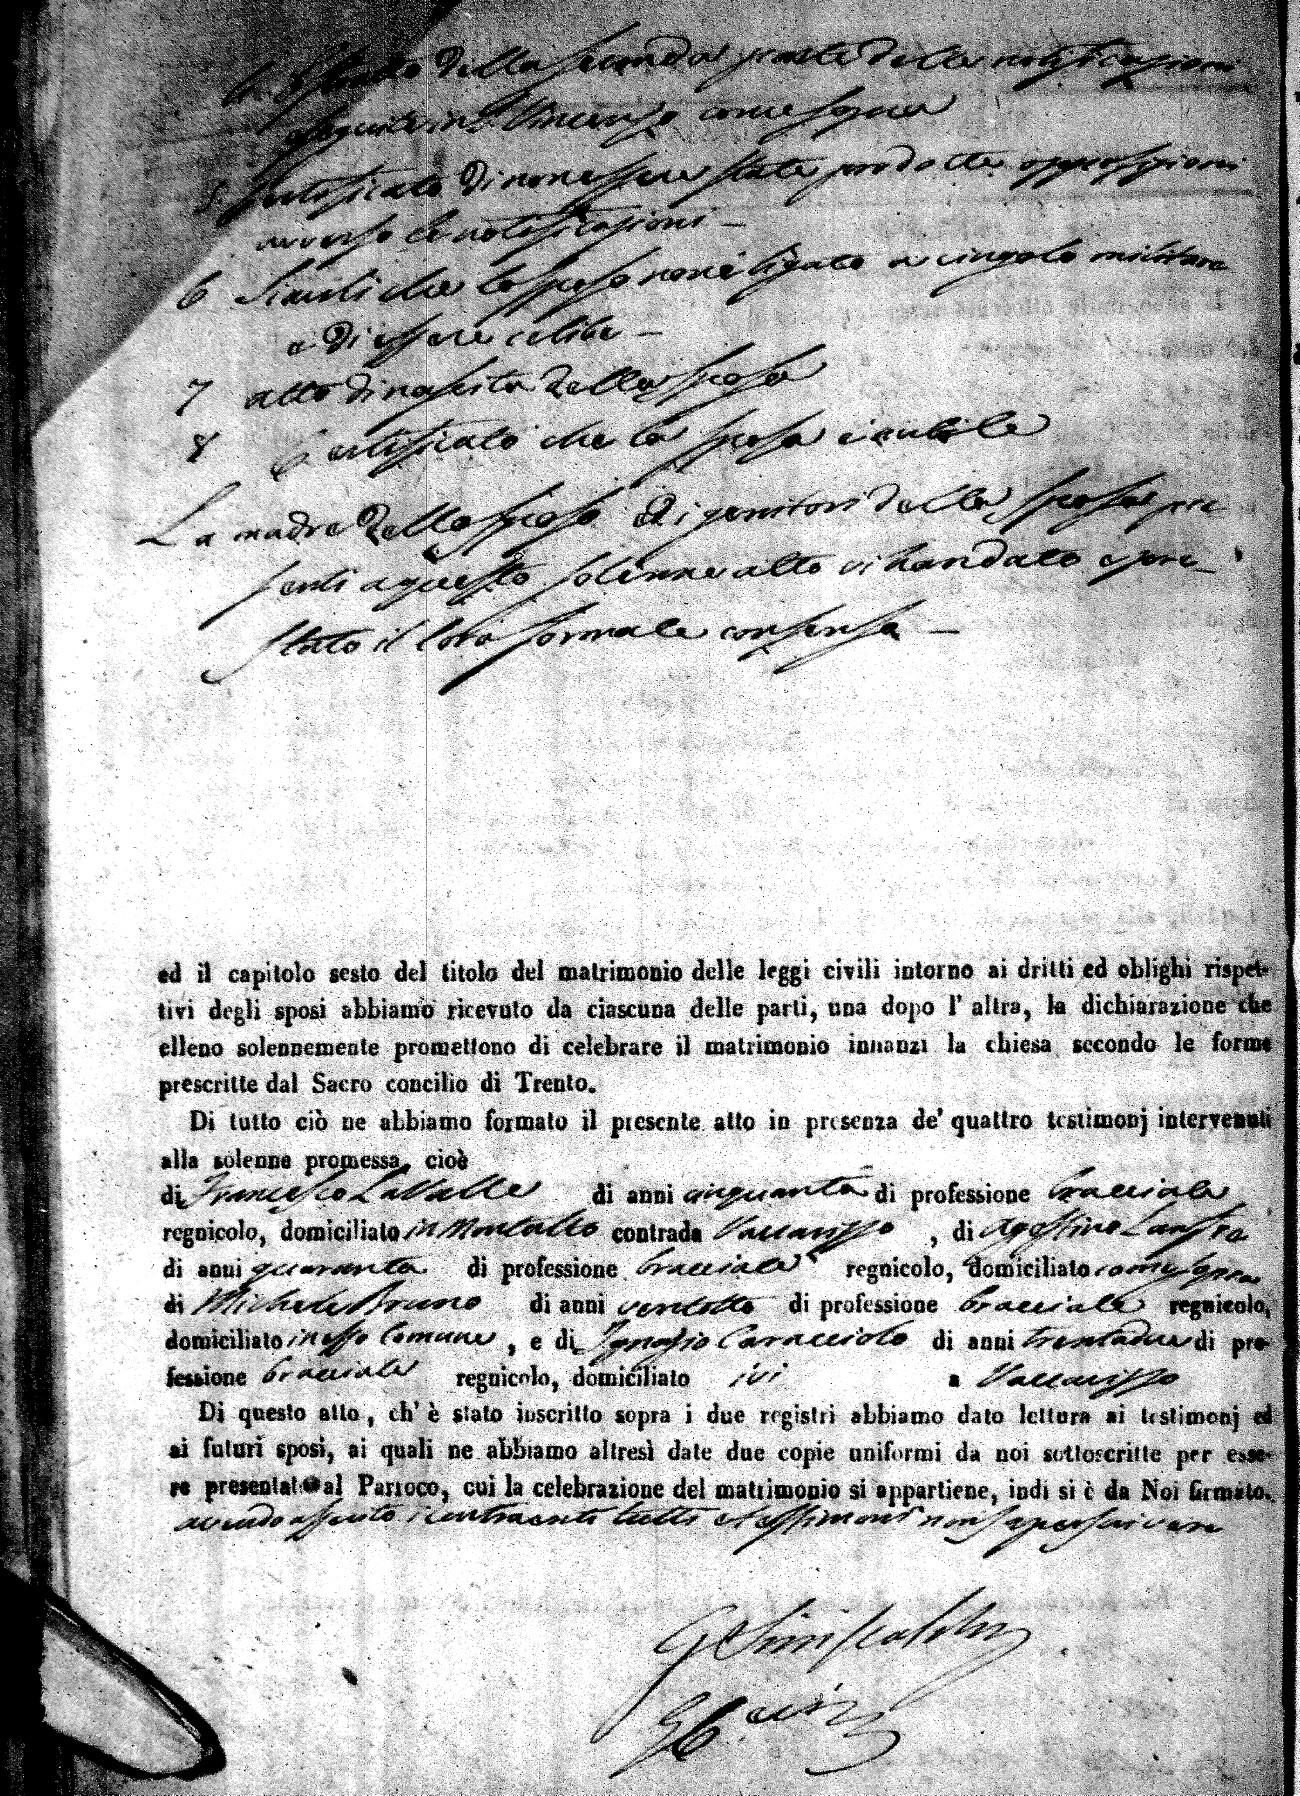 4. Estratto della seconda parte delle notificazioni
seguite in S. Vincenzo come sopra
5. Certificato di non essere state prodotte opposizioni
avverso le notificazioni —
6 Simili che lo sposo non è ligato a cingolo militare
e di essere celibe —
7 atto di nascita della sposa
8 Certificato che la sposa è nubile
La madre dello sposo e di genitori della sposa pre
senti a questo solenne atto vi han dato e pre_
stato il loro formale consenso —
ed il capitolo sesto del titolo del matrimonio delle leggi civili intorno ai dritti ed oblighi rispet-
tivi degli sposi abbiamo ricevuto da ciascuna delle parti, una dopo l' altra, la dichiarazione che
elleno solennemente promettono di celebrare il matrimonio innanzi la chiesa secondo le forme
prescritte dal Sacro concilio di Trento.
Di tutto ciò ne abbiamo formato il presente atto in presenza de' quattro testimonj intervenuti
alla solenne promessa, cioè
di Francesco La Valle di anni cinquanta di professione bracciale
regnicolo, domiciliato in Montalto contrada Vaccarizzo , di Agostino
di anni quaranta di professione bracciale regnicolo, domiciliato come sopra
di Michele Bruno di anni ventotto di professione bracciale regnicolo,
domiciliato in esso Comune , e di Ignazio Caracciolo di anni trentadue di pro-
fessione bracciale regnicolo, domiciliato ivi a Vaccarizzo
Di questo atto, ch' è stato inscritto sopra i due registri abbiamo dato lettura ai testimonj ed
ai futuri sposi, ai quali ne abbiamo altresì date due copie uniformi da noi sottoscritte per esse-
re presentate al Parroco, cui la celebrazione del matrimonio si appartiene, indi si è da Noi firmato.
avendo asserito i contraenti tutti e testimoni non saper scrivere